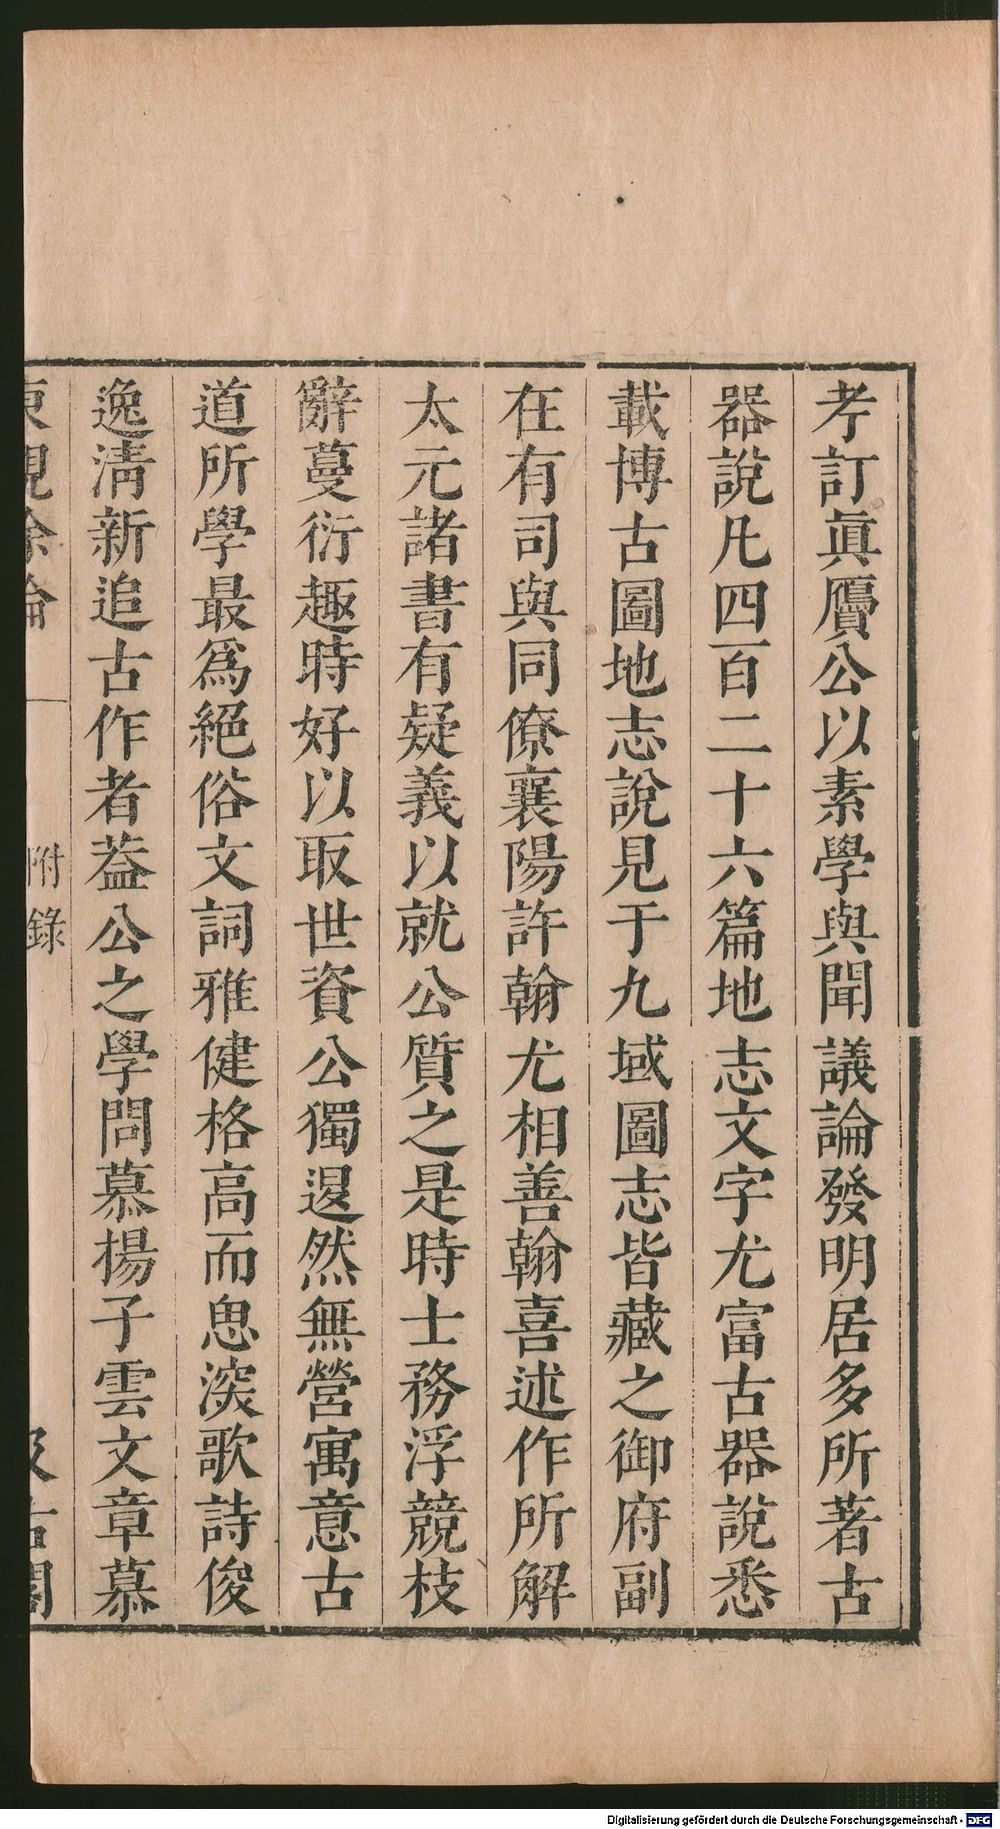 考訂眞贗公以素學與聞議論發明居多所著古
器說凡四百二十六篇地志文字尤富古器說悉
載博古圖地志說見于九域圖志皆藏之御府副
在有司與同僚襄陽許翰尤相善翰喜述作所解
太元諸書有疑義以就公質之是時士務浮競枝
辭蔓衍趣時好以取世資公獨逞然無營寓意古
道所學最爲絕俗文詞雅健格高而思深歌詩俊
逸淸新追古作者葢公之學問慕揚子雲文章慕
東觀余論 附錄 汲古閣
Digitalisierung gefördert durch die Deutsche Forschungsgemeinschaft - DFG